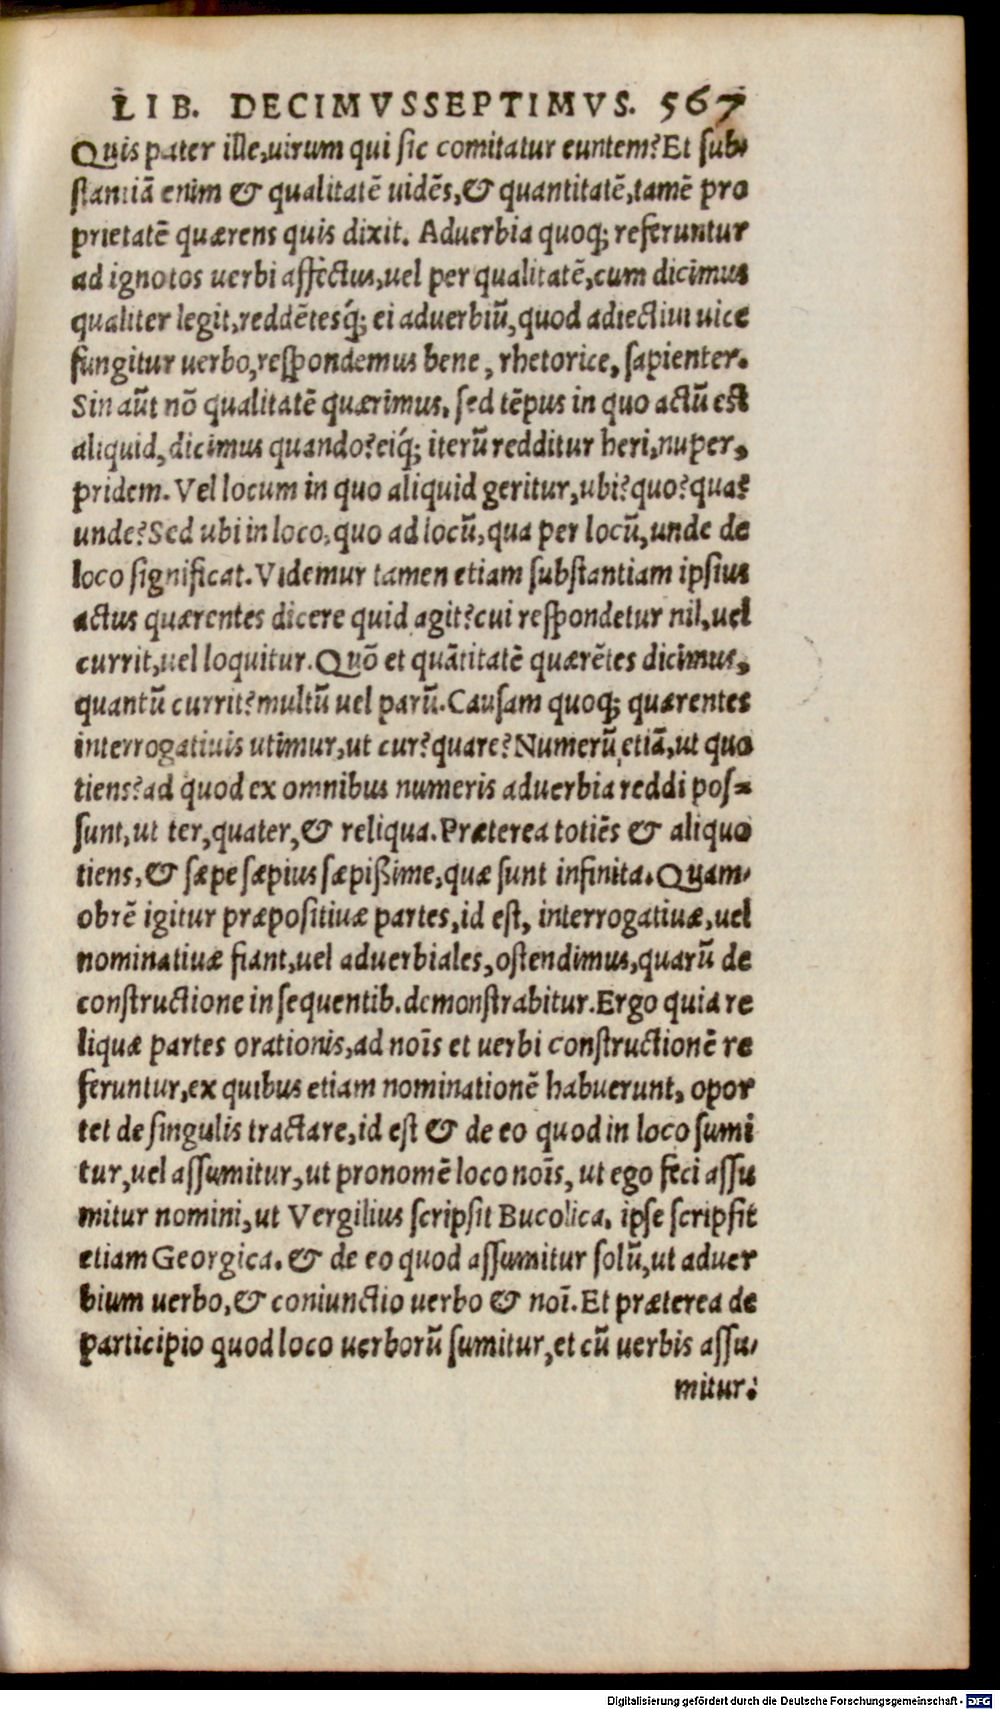 LIB. DECIMVSSEPTIMVS. 567
Quis pater ille, uirum qui sic comitatur euntem? Et sub-
stantiā enim & qualitatē uidēs, & quantitatē, tamē pro
prietatē quærens quis dixit. Aduerbia quoq; referuntur
ad ignotos uerbi affectus, uel per qualitatē, cum dicimus
qualiter legit, reddētesq́; ei aduerbiū, quod adiectiui uice
fungitur uerbo, respondemus bene, rhetorice, sapienter.
Sin aūt nō qualitatē quærimus, sed tēpus in quo actū est
aliquid, dicimus quando? eiq́; iterū redditur heri, nuper,
pridem. Vel locum in quo aliquid geritur, ubi? quo? qua?
unde? Sed ubi in loco, quo ad locū, qua per locū, unde de
loco significat. Videmur tamen etiam substantiam ipsius
actus quærentes dicere quid agit? cui respondetur nil, uel
currit, uel loquitur. Quō et quātitatē quærētes dicimus,
quantū currit? multū uel parū. Causam quoq; quærentes
interrogatiuis utimur, ut cur? quare? Numerū etiā, ut quo
tiens? ad quod ex omnibus numeris aduerbia reddi pos-
sunt, ut ter, quater, & reliqua. Præterea totiēs & aliquo
tiens, & sæpe sæpius sæpißime, quæ sunt infinita. Quam-
obrē igitur præpositiuæ partes, id est, interrogatiuæ, uel
nominatiuæ fiant, uel aduerbiales, ostendimus, quarū de
constructione in sequentib. demonstrabitur. Ergo quia re
liquæ partes orationis, ad noīs et uerbi constructionē re
feruntur, ex quibus etiam nominationē habuerunt, opor
tet de singulis tractare, id est & de eo quod in loco sumi
tur, uel assumitur, ut pronomē loco noīs, ut ego feci assu
mitur nomini, ut Vergilius scripsit Bucolica, ipse scripsit
etiam Georgica. & de eo quod assumitur solū, ut aduer
bium uerbo, & coniunctio uerbo & noī. Et præterea de
participio quod loco uerborū sumitur, et cū uerbis assu-
mitur:
Digitalisierung gefördert durch die Deutsche Forschungsgemeinschaft - DFG